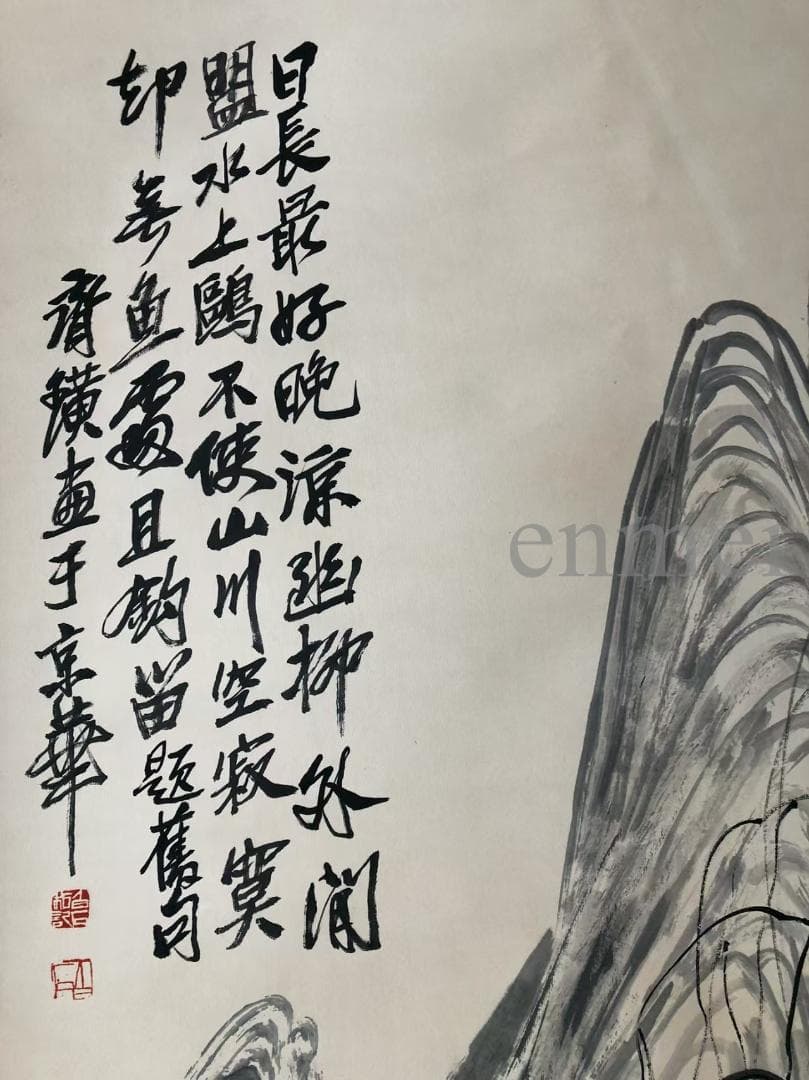 日長最好晚涼幽柳外閒
盟水上鷗不使山川空寂寞
却無魚處且鉤留題舊句
齊璜畫于京華
enme